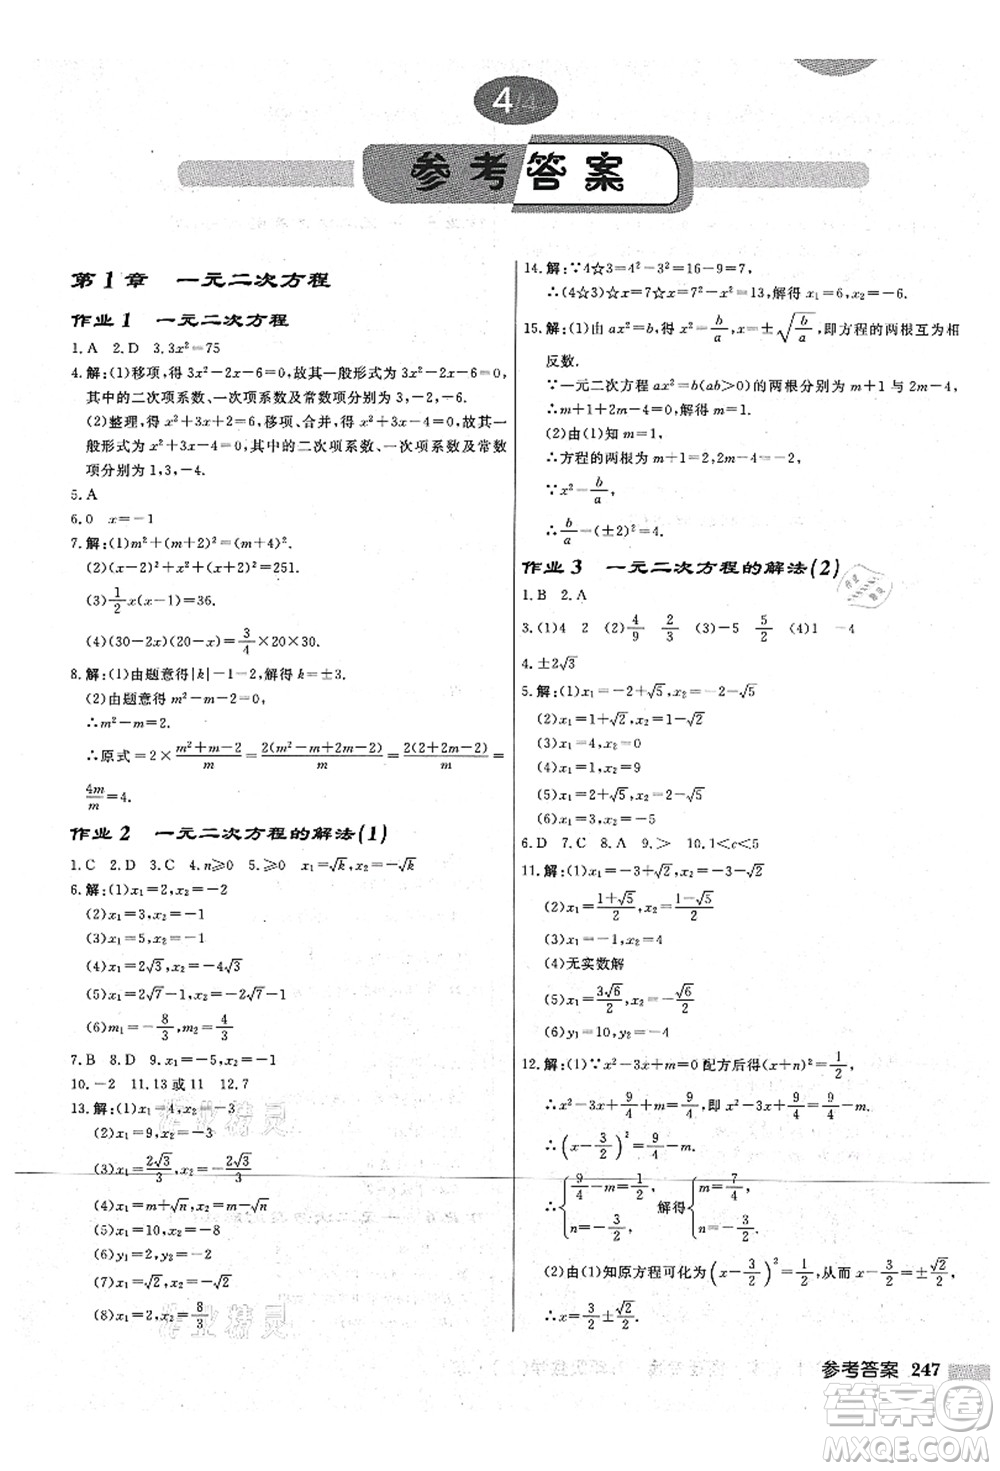 4/4
参考答案
第1章 一元二次方程
作业1 一元二次方程
1.A 2.D 3.3x²=75
4.解:(1)移项,得3x²-2x-6=0,故其一般形式为3x²-2x-6=0,其
中的二次项系数、一次项系数及常数项分别为3,-2,-6.
(2)整理,得x²+3x+2=6,移项、合并,得x²+3x-4=0,故其一
般形式为x²+3x-4=0,其中的二次项系数、一次项系数及常数
项分别为1,3,-4.
5.A
6.0 x=-1
7.解:(1)m²+(m+2)²=(m+4)².
(2)x²+(x+1)²+(x+2)²=251.
(3)1/2 x(x-1)=36.
(4)(30-2x)(20-x)=3/4×20×30.
8.解:(1)由题意得|k|-1=2,解得k=±3.
(2)由题意得m²-m-2=0,
∴m²-m=2.
∴原式=2×(m²+m-2)/m=2(m²-m+2m-2)/m=2(2+2m-2)/m=
4m/m=4.
作业2 一元二次方程的解法(1)
1.C 2.D 3.C 4.n≥0 5.≥0 x₁=√k,x₂=-√k
6.解:(1)x₁=2,x₂=-2
(2)x₁=3,x₂=-1
(3)x₁=5,x₂=-1
(4)x₁=2√3,x₂=-4√3
(5)x₁=2√7-1,x₂=-2√7-1
(6)m₁=-8/3,m₂=4/3
7.B 8.D 9.x₁=-5,x₂=-1
10.-2 11.13或11 12.7
13.解:(1)x₁=4,x₂=-3
(2)x₁=9,x₂=-3
(3)x₁=2√3/3,x₂=-2√3/3
(4)x₁=m+√n,x₂=m-√n
(5)x₁=10,x₂=-8
(6)y₁=2,y₂=-1
(7)x₁=√2,x₂=-√2
(8)x₁=2,x₂=8/3
14.解:∵4☆3=4²-3²=16-9=7,
∴(4☆3)☆x=7☆x=7²-x²=13,解得x₁=6,x₂=-6.
15.解:(1)由ax²=b,得x²=b/a,x=±√(b/a),即方程的两根互为相
反数.
∵一元二次方程ax²=b(ab>0)的两根分别为m+1与2m-4,
∴m+1+2m-4=0,解得m=1.
(2)由(1)知m=1,
∴方程的两根为m+1=2,2m-4=-2.
∵x²=b/a,
∴b/a=(±2)²=4.
作业3 一元二次方程的解法(2)
1.B 2.A
3.(1)4 2 (2)4/9 2/3 (3)-5 5/2 (4)1 -4
4.±2√3
5.解:(1)x₁=-2+√5,x₂=-2-√5
(2)x₁=1+√2,x₂=1-√2
(3)x₁=4,x₂=-1
(4)x₁=1,x₂=9
(5)x₁=2+√5,x₂=2-√5
(6)x₁=3,x₂=-5
6.D 7.C 8.A 9.> 10.1<c<5
11.解:(1)x₁=-3+√2,x₂=-3-√2
(2)x₁=(1+√5)/2,x₂=(1-√5)/2
(3)x₁=-1,x₂=4
(4)无实数解
(5)x₁=3√6/2,x₂=-√6/2
(6)y₁=10,y₂=-1
12.解:(1)∵x²-3x+m=0配方后得(x+n)²=1/2,
∴x²-3x+9/4+m=9/4,即x²-3x+9/4=9/4-m.
∴(x-3/2)²=9/4-m.
∴{9/4-m=1/2, n=-3/2. 解得{m=7/4, n=-3/2.
(2)由(1)知原方程可化为(x-3/2)²=1/2,从而x-3/2=±√2/2,
∴x=3/2±√2/2.
参考答案 247
答案卷
MXQE.COM